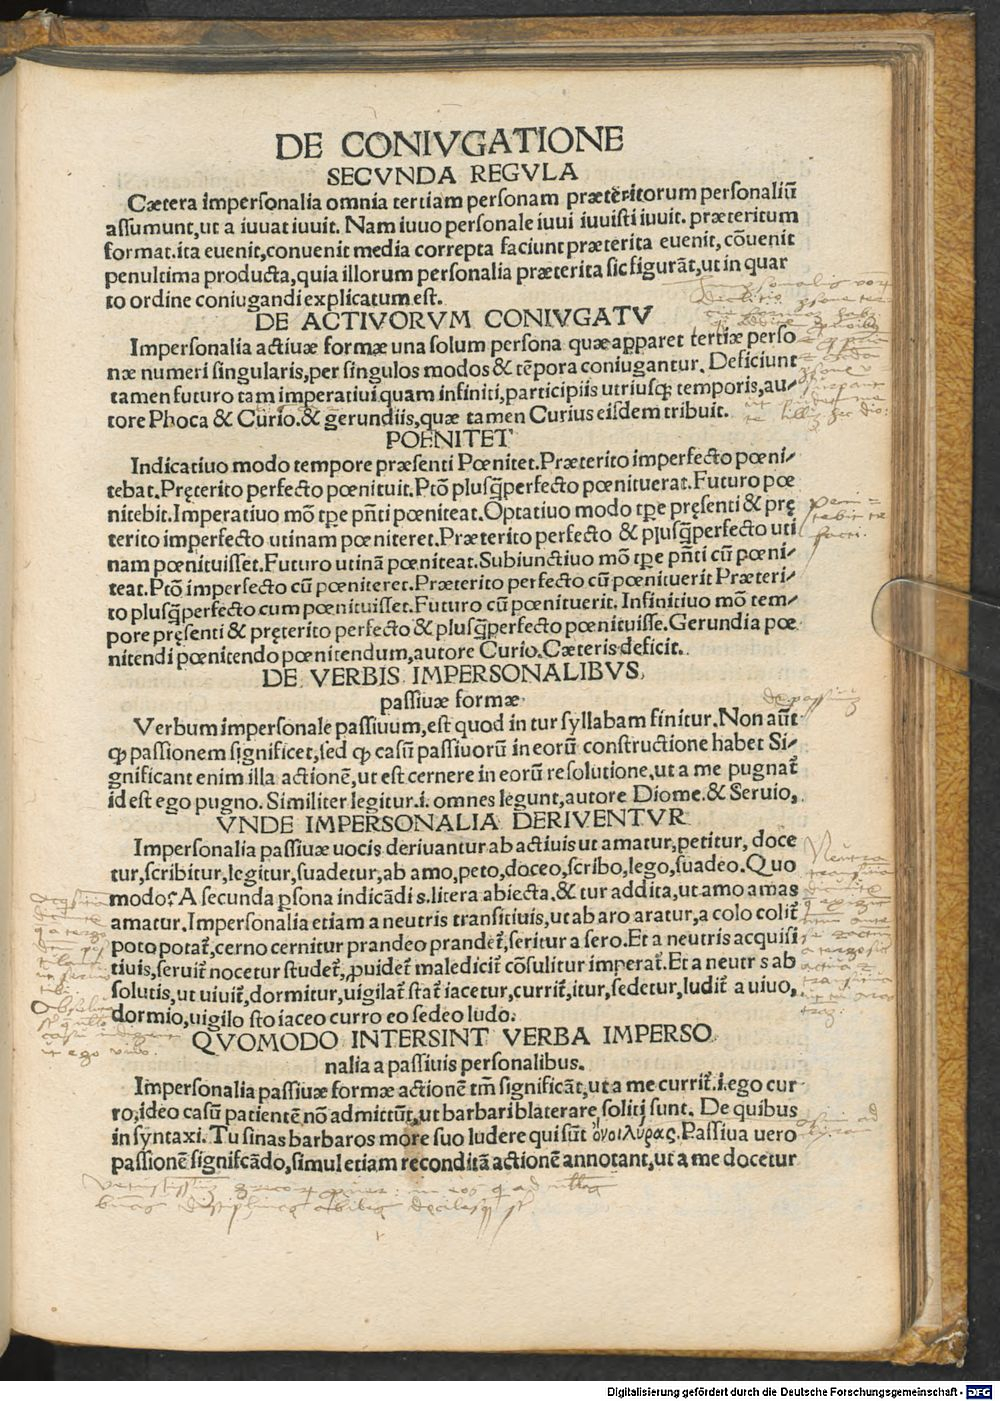 DE CONIVGATIONE
SECVNDA REGVLA
Cætera impersonalia omnia tertiam personam præteritorum personaliũ
assumunt,ut a iuuat iuuit. Nam iuuo personale iuui iuuisti iuuit. præteritum
format.ita euenit,conuenit media correpta faciunt præterita euenit, cõuenit
penultima producta,quia illorum personalia præterita sic figurãt,ut in quar
to ordine coniugandi explicatum est.
DE ACTIVORVM CONIVGATV
Impersonalia actiuæ formæ una solum persona quæ apparet tertiæ perso
næ numeri singularis,per singulos modos & tẽpora coniugantur. Deficiunt
tamen futuro tam imperatiui quam infiniti,participiis utriusq; temporis,au-
tore Phoca & Curio.& gerundiis,quæ tamen Curius eisdem tribuit.
POENITET
Indicatiuo modo tempore præsenti Pœnitet.Præterito imperfecto pœni-
tebat.Pręterito perfecto pœnituit.Ptõ plusq̃perfecto pœnituerat.Futuro pœ
nitebit.Imperatiuo mõ tꝑe pñti pœniteat.Optatiuo modo tꝑe pręsenti & prę
terito imperfecto utinam pœniteret.Præterito perfecto & plusq̃perfecto uti
nam pœnituisset.Futuro utinã pœniteat.Subiunctiuo mõ tꝑe pñti cũ pœni-
teat.Ptõ imperfecto cũ pœniteret.Præterito perfecto cũ pœnituerit Præteri-
to plusq̃perfecto cum pœnituisset.Futuro cũ pœnituerit. Infinitiuo mõ tem-
pore pręsenti & pręterito perfecto & plusq̃perfecto pœnituisse.Gerundia pœ
nitendi pœnitendo pœnitendum,autore Curio.Cæteris deficit.
DE VERBIS IMPERSONALIBVS
passiuæ formæ
Verbum impersonale passiuum,est quod in tur syllabam finitur.Non aũt
ꝙ passionem significet,sed ꝙ casũ passiuorũ in eorũ constructione habet Si-
gnificant enim illa actionẽ,ut est cernere in eorũ resolutione,ut a me pugnat᷑
id est ego pugno. Similiter legitur.i. omnes legunt,autore Diome.& Seruio,
VNDE IMPERSONALIA DERIVENTVR
Impersonalia passiuæ uocis deriuantur ab actiuis ut amatur,petitur, doce
tur,scribitur,legitur,suadetur,ab amo,peto,doceo,scribo,lego,suadeo.Quo
modo? A secunda ꝑsona indicãdi s.litera abiecta.& tur addita,ut amo amas
amatur.Impersonalia etiam a neutris transitiuis,ut ab aro aratur,a colo colit᷑
poto potat᷑,cerno cernitur prandeo prandet᷑,seritur a sero.Et a neutris acquisi
tiuis,seruit᷑ nocetur studet᷑,ꝓuidet᷑ maledicit᷑ cõsulitur imperat᷑.Et a neutr s ab
solutis,ut uiuit᷑,dormitur,uigilat᷑ stat᷑ iacetur,currit᷑,itur,sedetur,ludit᷑ a uiuo,
dormio,uigilo sto iaceo curro eo sedeo ludo.
QVOMODO INTERSINT VERBA IMPERSO
nalia a passiuis personalibus.
Impersonalia passiuæ formæ actionẽ tm̃ significãt,ut a me currit᷑.i.ego cur
ro,ideo casũ patientẽ nõ admittũt,ut barbari blaterare soliti sunt. De quibus
in syntaxi. Tu sinas barbaros more suo ludere qui sũt ὀνοιλύρας.Passiua uero
passionẽ signifcãdo,simul etiam reconditã actionẽ annotant,ut a me docetur
Digitalisierung gefördert durch die Deutsche Forschungsgemeinschaft - DFG